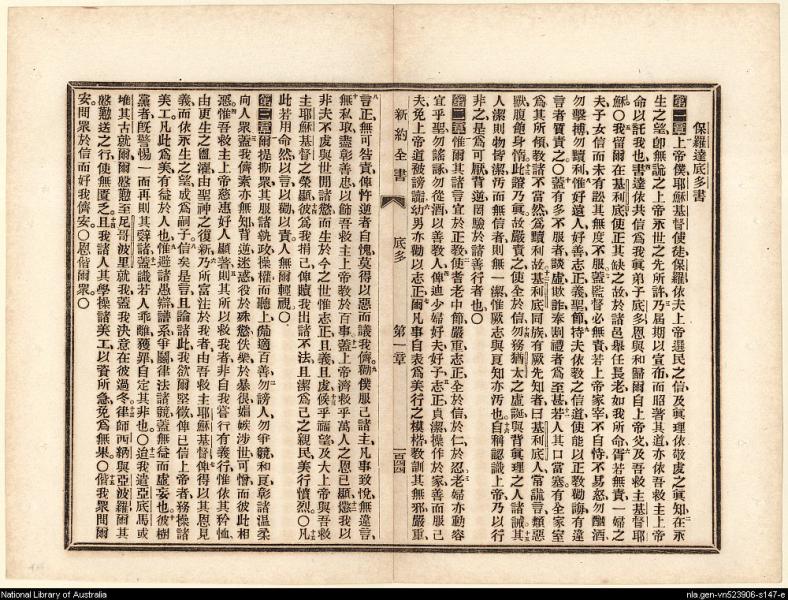 保羅達底多書
第一章 上帝僕耶穌基督使徒保羅依夫上帝選民之信及眞理依敬虔之眞知在永
生之望卽無謊之上帝永世之先所許乃屆期以宣布而昭著其道亦依吾救主上帝
命以託我也書達依共信爲我眞弟子底多恩與和歸爾自上帝父及吾救主基督耶
穌〇我留爾在基利底使正其缺之故於諸邑舉任長老如我所命胥若無責一婦之
夫子女信而未有訟其無度不服蓋監督必無責若上帝家宰不自恃不易怒勿酗酒
勿擊搏勿贖利惟好遠人好善志正義聖節特夫依敎之信道使能以正敎勸誨有違
言者責之〇蓋有多不服者談虛欺詐奉割禮者爲至甚若人其口當塞有全家室
爲其所傾敎諸不當然爲贖利故基利底同族有厥先知者曰基利底人常謊言類惡
獸腹飽身惰此證乃眞故嚴責之使全於信勿務猶太之虛誕與背眞理之人諸誡其
人潔則物皆潔汚而無信者則無一潔惟厥志與良知亦汚也自稱認識上帝乃以行
非之是爲可厭背逆罔驗於諸善行者也〇
第二章 惟爾其諸言宜於正敎使耆老中節嚴重志正全於信於仁於忍老婦亦動容
宜乎聖勿謠諑勿從酒以善敎人俾迪少婦好夫好子志正貞潔操作於家善而服己
夫免上帝道被謗讟幼男亦勸以志正爾凡事自表爲美行之模楷敎訓其無邪嚴重
新約全書 底多 第一章 一百四四
言正無可咎責俾忤逆者自愧莫得以惡而議我儕勸僕服己諸主凡事致悅無違言
無私取盡彰善忠以飾吾救主上帝敎於百事蓋上帝濟救乎萬人之恩已顯懲我以
非夫不虔與世閒諸慾而生於今之世惟志正且義且虔候乎福望及大上帝與吾救
主耶穌基督之榮顯彼爲我捐己俾贖我出諸不法且潔爲己之親民美行憤烈〇凡
此若用命然以言以勸以責人無爾輕視〇
第三章 爾提撕衆其服諸執政操權而聽上備適百善勿謗人勿爭競和良彰諸溫柔
向人衆蓋我儕素亦無知背逆迷惑役於殊慾佚樂於暴很媢嫉涉世可憎而彼此相
惡惟吾救主上帝慈憑好人顯著則其所以救我者非自我嘗行有義行惟依其矜恤
由更生之盥濯由聖神之復新乃所富注於我者由吾救主耶穌基督俾得以其恩見
義而依永生之望成爲嗣子信矣是言且論諸此我欲爾堅徵俾已信上帝者務操諸
美工凡此爲美有益於人也惟避諸愚辯譜系爭鬭律法諸競蓋無益而虛妄也彼樹
黨者旣警惕一而再則其辭諸蓋識若人乖離獲罪自定其非也〇迨我遣亞底馬或
堆其古就爾爾慇懃至尼哥波里就我蓋我決意在彼過冬律師西納與亞波羅爾其
慇懃送之行使無匱乏且我諸人其學操諸美工以資所急免爲無果〇偕我衆問爾
安問衆於信而好我儕安〇恩偕爾衆〇
National Library of Australia
nla.gen-vn523906-s147-e